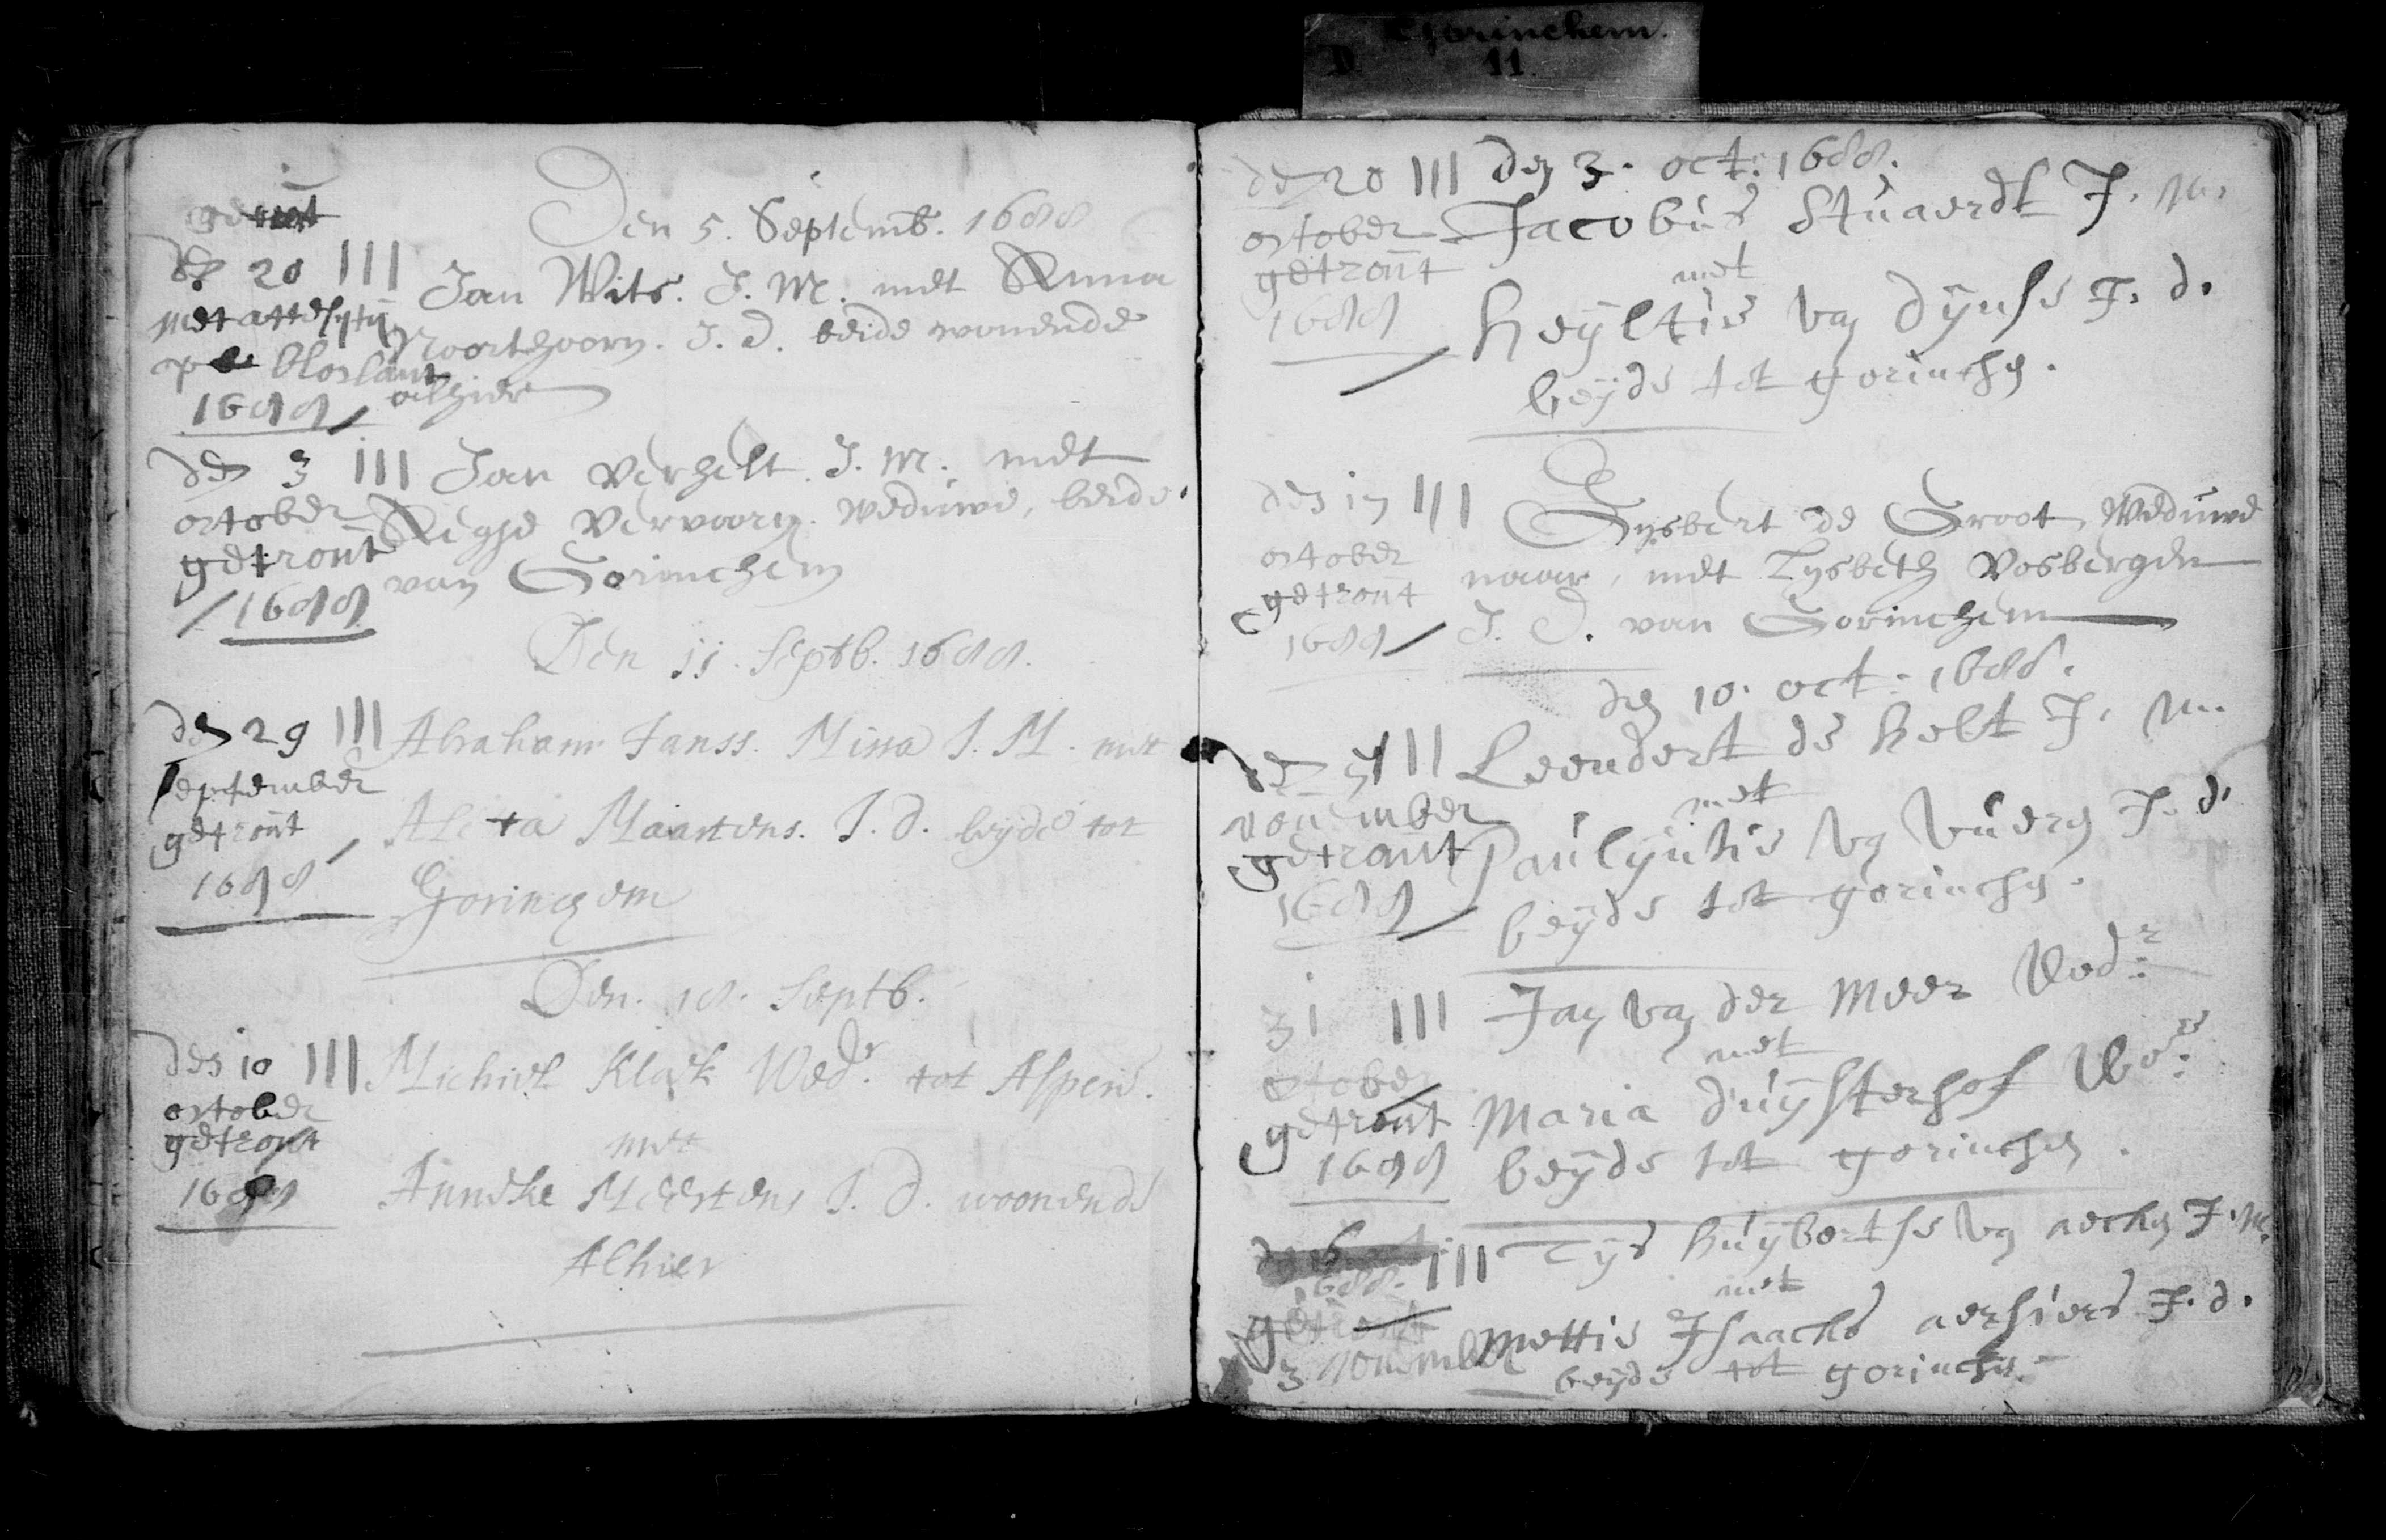 Gorinchem.
D 11
Den 5. Septemb. 1688
den 20 III
met attestatij
op
1688
Jan Wits. J. M. met Anna
Noorthoorn. J. D. beide wonende
alhier
den 3 III
october
getrout
1688
Jan Verhelt. J. M. met
Vervoorn. weduwe, beide
van Gorinchem
Den 11. Septb. 1688.
den 29 III
september
getrout
1688
Abraham Janss. Missa J. M. met
Aleta Maartens. J. d. beyde tot
Gorinchem
Den. 18. Septb.
den 10 III
october
getrout
1688
Michiel Klark Wedr. tot Asperen.
met
Anneke Meertens J. d. woonende
Alhier
den 20 III
october
getrout
1688
den 3. oct: 1688.
Jacobus Stuaerdt J. M.
met
heyltie van dynse J. d.
beyde tot gorinchen.
den 17 III
october
getrout
1688
Gysbert de Groot, Weduwe
naar, met Lysbeth Vosbergen
J. D. van Gorinchem
den 10. oct: 1688.
III
november
getrout
1688
Leendert de helt J. M.
met
Paulyntie van buern J. d.
beyde tot gorinchen.
31 III
october
getrout
1688
Jan van der Meer Wedr:
met
Maria duysterhof Wede:
beyde tot gorinchen.
1688. III
getrout
3 november
Tys huybertse van J. M.
met
Mettie Isaacks aersiers J. d.
beyde tot gorinchen.